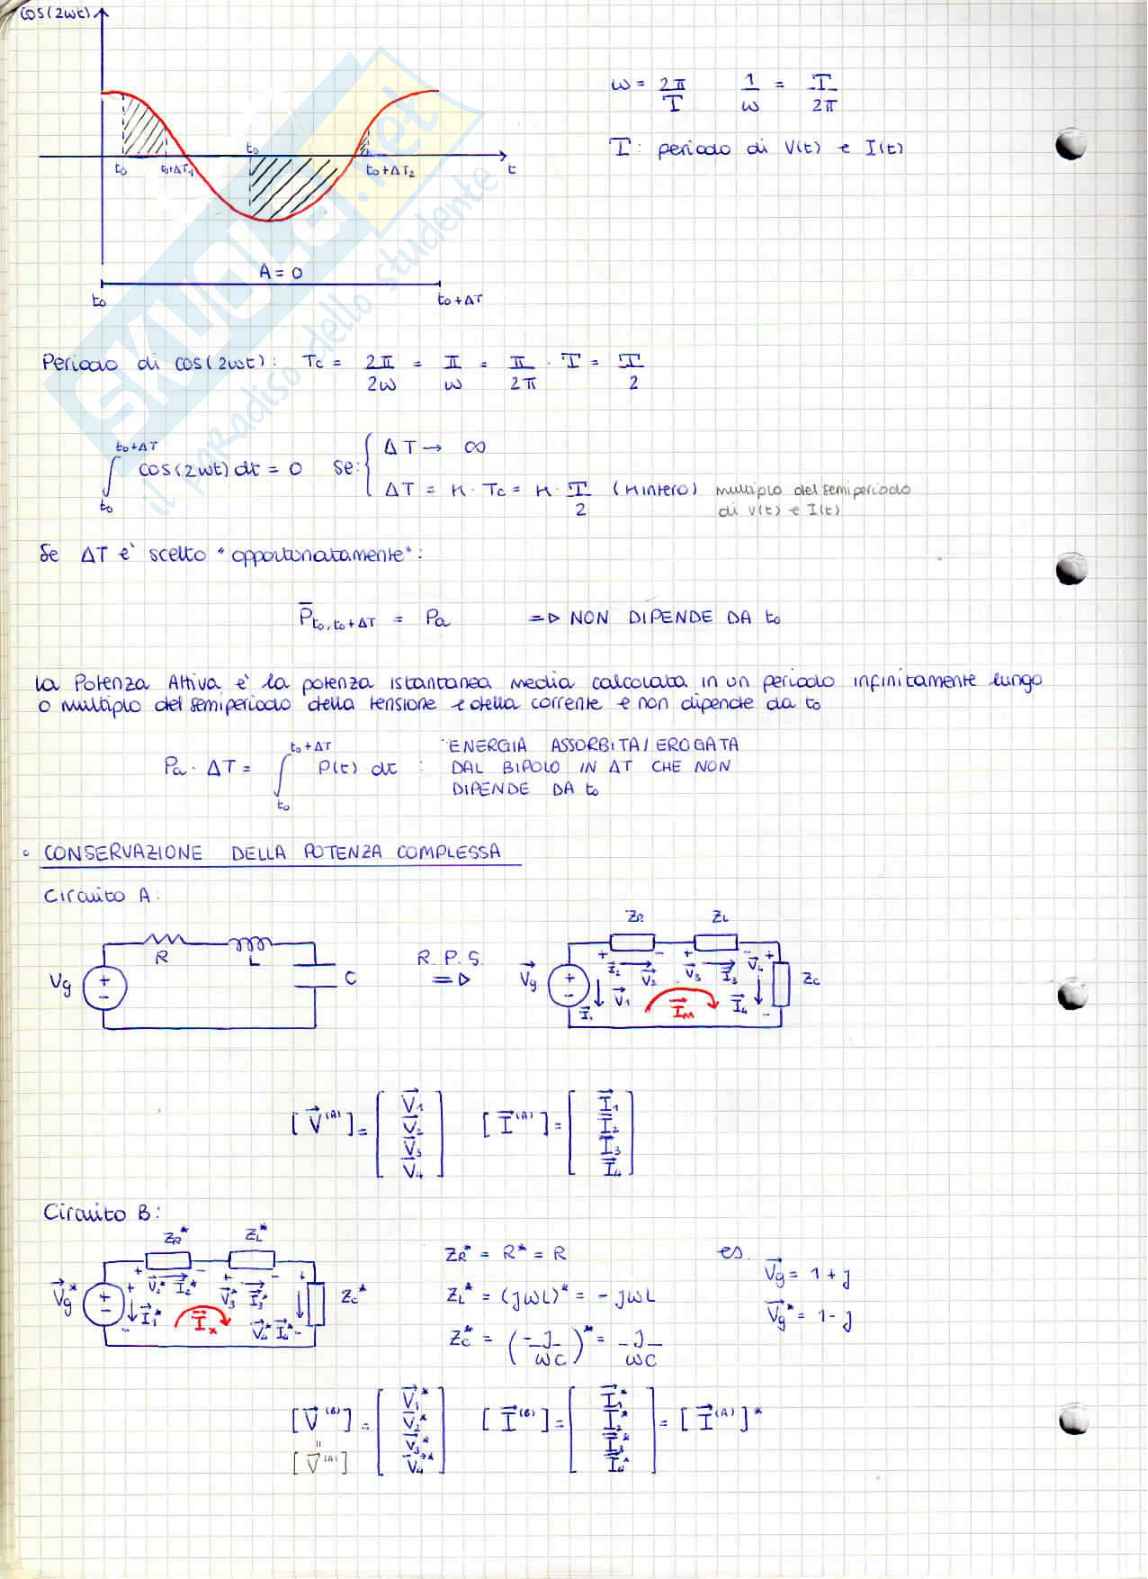 cos(2ωt)
t₀ t₀+ΔT₁ t₀ t₀+ΔT₂ t
A = 0
t₀ t₀+ΔT
ω = 2π/T 1/ω = T/2π
T: periodo di V(t) e I(t)
SKUOLA.net
il paradiso dello studente
Periodo di cos(2ωt): Tc = 2π/2ω = π/ω = π/2π · T = T/2
∫_{t₀}^{t₀+ΔT} cos(2ωt) dt = 0 se: { ΔT → ∞
ΔT = K · Tc = K · T/2 (K intero) multiplo del semiperiodo
di V(t) e I(t)
Se ΔT è scelto "opportunatamente":
P̄_{t₀,t₀+ΔT} = Pa => NON DIPENDE DA t₀
La Potenza Attiva è la potenza istantanea media calcolata in un periodo infinitamente lungo
o multiplo del semiperiodo della tensione e della corrente e non dipende da t₀
Pa · ΔT = ∫_{t₀}^{t₀+ΔT} P(t) dt : ENERGIA ASSORBITA/EROGATA
DAL BIPOLO IN ΔT CHE NON
DIPENDE DA t₀
• CONSERVAZIONE DELLA POTENZA COMPLESSA
Circuito A:
Vg + - R L C
R.P.S. =>
V⃗g + - Z_R Z_L Z_C
+ I⃗₂ V⃗₂ - + V⃗₃ I⃗₃ - V⃗₄ +
I⃗₁ V⃗₁ I⃗m I⃗₄ -
[V⃗⁽ᴬ⁾] = [V⃗₁ V⃗₂ V⃗₃ V⃗₄] [I⃗⁽ᴬ⁾] = [I⃗₁ I⃗₂ I⃗₃ I⃗₄]
Circuito B:
V⃗g* + - Z_R* Z_L* Z_C*
+ V⃗₂* I⃗₂* - + V⃗₃* I⃗₃* - +
+ I⃗₁* - I⃗x V⃗₄* I⃗₄* -
Z_R* = R* = R
Z_L* = (jωL)* = -jωL
Z_C* = (-j/ωC)* = -j/ωC
es. V⃗g = 1 + j
V⃗g* = 1 - j
[V⃗⁽ᴮ⁾] = [V⃗₁* V⃗₂* V⃗₃* V⃗₄*] [I⃗⁽ᴮ⁾] = [I⃗₁* I⃗₂* I⃗₃* I⃗₄*] = [I⃗⁽ᴬ⁾]*
=
[V⃗⁽ᴬ⁾]